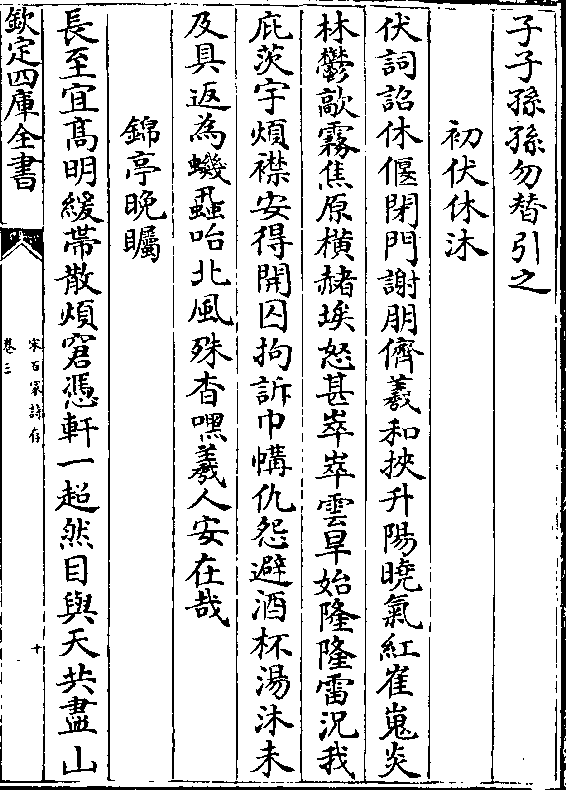 子子孫孫勿替引之
初伏休沐
伏詞詔休偃閉門謝朋儕羲和挾升陽曉氣紅崔嵬炎
林鬱歊霧焦原橫赭埃怒甚崒崒雲旱始隆隆雷況我
庇茨宇煩襟安得開囚拘訴巾幬仇怨避酒杯湯沐未
及具返為蟣蝨咍北風殊杳嘿羲人安在哉
錦亭晚矚
長至宜髙明緩帶散煩窘憑軒一超然目與天共盡山
欽定四庫全書
宋百家詩存
卷三
十